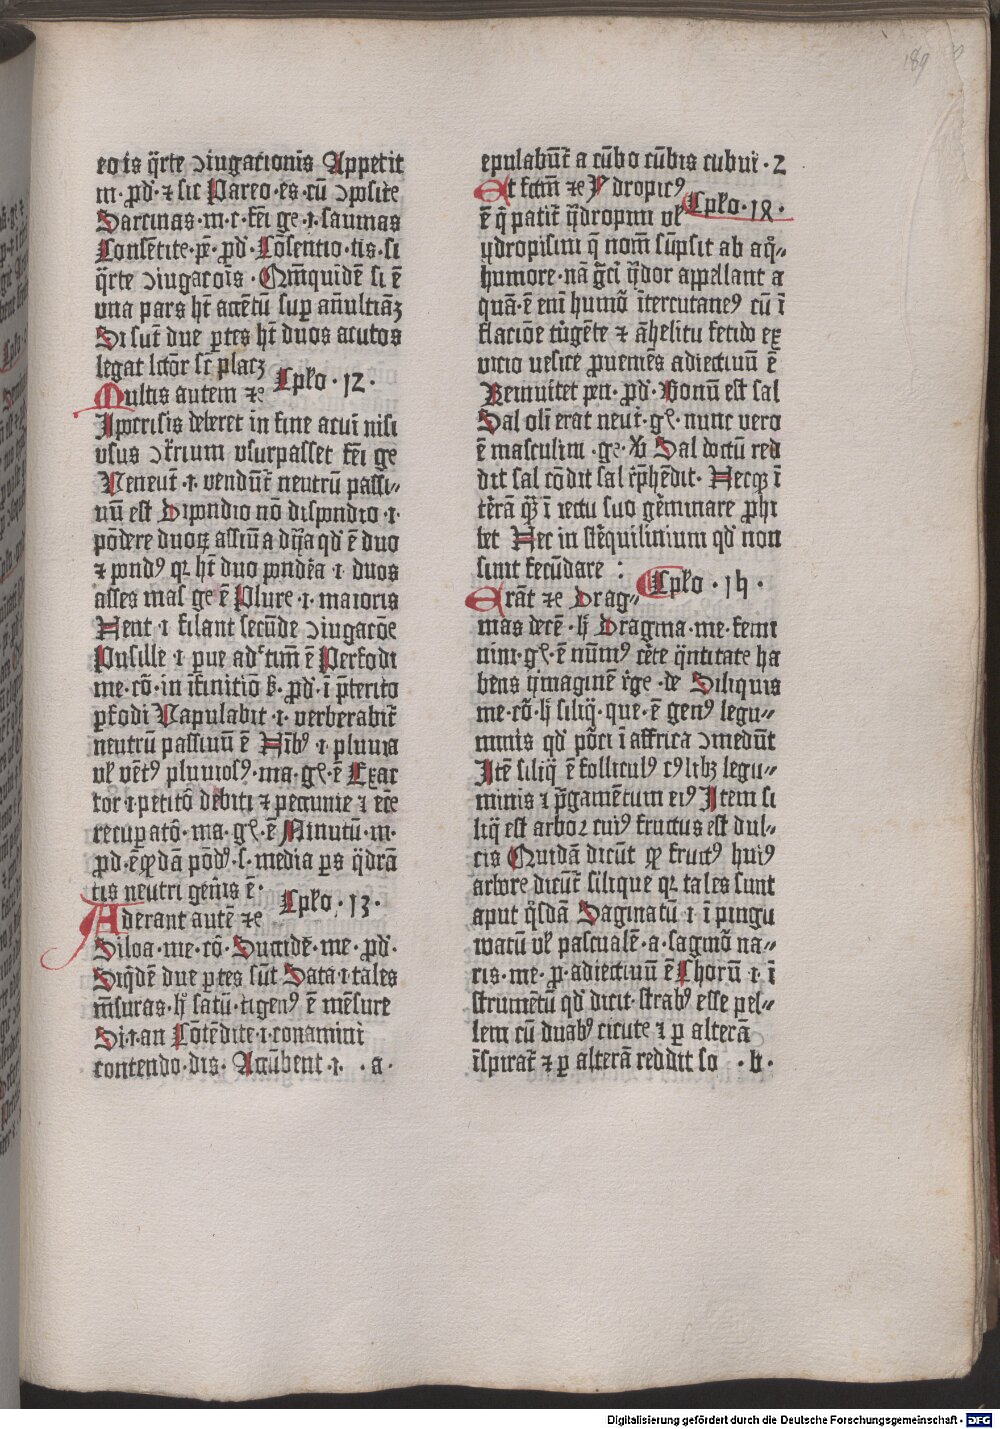 189
eo is q̈rte ↄiugationis̄ Appetit
m · pd̄ · ⁊ sic Pareo · es · cū ↄpositē
Sarcinas · m · c · fēi ge · i · saumas
Consētite · p̄ · pd̄ · Cōsentio · tis · si
q̈rte ↄiugacōis · Qm̄quidē si ē
vna pars ht̄ accētū suꝑ an̄ultiāʒ
Si sūt due ꝑtes ht̄ duos acutos
legat lctōr sc̄ placʒ
Cplo · 12 ·
Multis autem ⁊c̄
Ipocrisis deberet in fine acui nisi
vsus ↄtrium vsurpasset fēi ge
Veneūt · i · vendūt̄ neutrū passi⸗
uū est Dipondio nō dispondio · i ·
pōdere duoꝝ assiū a dyā qd̄ ē duo
⁊ pondꝰ qꝛ ht̄ duo pondēa · i · duos
asses mas ge ē Plure · i · maioris
Nent · i · filant secūde ↄiugacōe
Pusille · i · ꝑue aduītm̄ ē Perfodi
me · cō · in īfinitiō v̄ · pd̄ · ī p̄terito
ꝑfodi Vapulabit · i · verberabit̄
neutrū passiuū ē Nībꝰ · i · pluuia
vl̄ vētꝰ pluuiosꝰ · ma · gͥ · ē Exac
tor · i · petitō debiti ⁊ pecunie ⁊ ecē
recuꝑatō · ma · gͥ · ē Minutū · m ·
pd̄ · ē q̄dā pōdꝰ · s · media ꝑs q̈drā
tis neutri genīs ē ·
Cplo · 13 ·
Aderant autē ⁊c̄
Siloa · me · cō · Succidē · me · pd̄ ·
Siq̄dē due ꝑtes sūt Sata · i · tales
m̄suras · h̄ satū · ti genꝰ ē mēsure
Si · i · an Cōtēdite · i · conamini
contendo · dis · Accūbent · i · · a ·
epulabūt̄ a cūbo cūbis cubui · 2
Et fctm̄ ⁊c̄ Ydropicꝰ
Cplo · 18 ·
ē q̄ patit̄ ydropim vl̄
ydropisim q̄ nom̄ sūpsit ab aq̄⸗
humore · nā gͣci ydor appellant a
quā · ē eni humō ītercutaneꝰ cū ī
flacōe tūgēte ⁊ āhelitu fetido ex
vicio vesice ꝓueniēs adiectiuū ē
Remittet pen · pd̄ · Bonū est sal
Sal oli erat neut̄ · gͥ · nunc vero
ē masculini · ge · Vn̄ Sal doctū red
dit sal cōdit sal rp̄hēdit · Necqʒ ī
tērā qʒ ī iectu suo gērminare ꝓhi
bet Nec in stērquilinium qd̄ non
sinit fecūdare :
Cplo · 14 ·
Erāt ⁊c̄ Drag⸗
mas decē · h̄ Dragma · me · femi
nini · gͥ · ē nūmꝰ cēte q̈ntitate ha
bens ymaginē rḡe · de Siliquis
me · cō · h̄ siliq̄ · que · ē genꝰ legu⸗
minis qd̄ pōci ī affrica ↄmedūt
Itē siliq̄ ē folliculꝰ cꝰlibʒ legu⸗
minis ⁊ ꝑgamētum eiꝰ Item si
liq̄ est arbor cuiꝰ fructus est dul⸗
cis Quidā dicūt qͦ fructꝰ huiꝰ
arbore dicūt̄ silique qꝛ tales sunt
aput q̄sdā Saginatū · i · ī pingu
watū vl̄ pascualē · a · sagīno na⸗
ris · me · ꝓ · adiectiuū ē Chorū · i · ī
strumētū qd̄ dicit · strabꝰ esse pel⸗
lem cū duabꝰ cicute ⁊ ꝑ alterā
īspirat̄ ⁊ ꝑ alterā reddit so · b ·
Digitalisierung gefördert durch die Deutsche Forschungsgemeinschaft - DFG